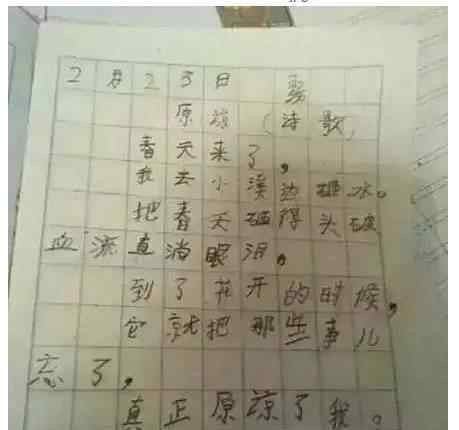 2月23日
原谅（诗歌）
春天来了，
我去小溪边砸冰。
把春天砸得头破
血流直淌眼泪。
到了花开的时候，
它就把那些事儿
忘了，
真正原谅了我。